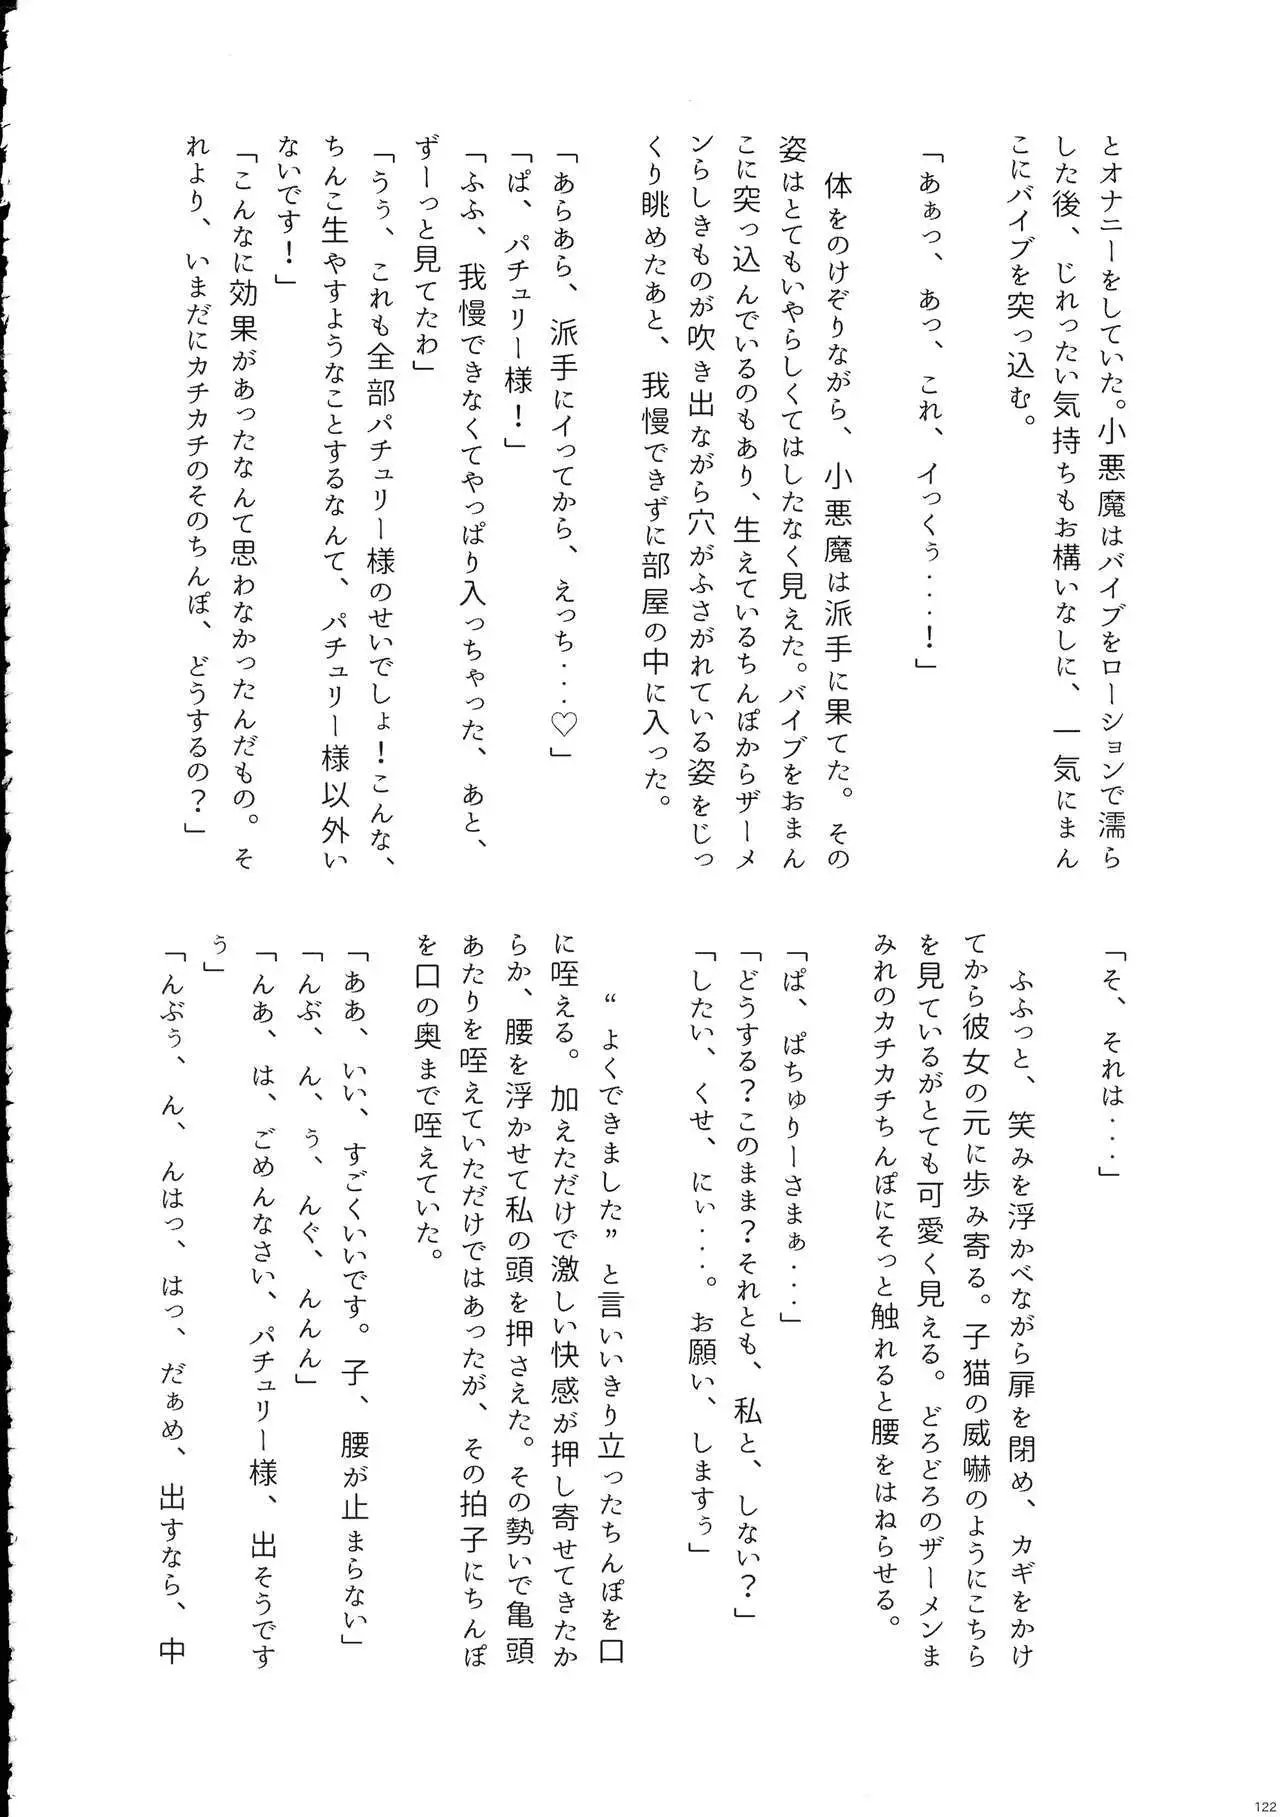 とオナニーをしていた。小悪魔はバイブをローションで濡ら
した後、じれったい気持ちもお構いなしに、一気にまん
こにバイブを突っ込む。
「あぁっ、あっ、これ、イっくぅ・・・！」
体をのけぞりながら、小悪魔は派手に果てた。その
姿はとてもいやらしくてはしたなく見えた。バイブをおまん
こに突っ込んでいるのもあり、生えているちんぽからザーメ
ンらしきものが吹き出ながら穴がふさがれている姿をじっ
くり眺めたあと、我慢できずに部屋の中に入った。
「あらあら、派手にイってから、えっち・・・♡」
「ぱ、パチュリー様！」
「ふふ、我慢できなくてやっぱり入っちゃった、あと、
ずーっと見てたわ」
「うぅ、これも全部パチュリー様のせいでしょ！こんな、
ちんこ生やすようなことするなんて、パチュリー様以外い
ないです！」
「こんなに効果があったなんて思わなかったんだもの。そ
れより、いまだにカチカチのそのちんぽ、どうするの？」
「そ、それは・・・」
ふふっと、笑みを浮かべながら扉を閉め、カギをかけ
てから彼女の元に歩み寄る。子猫の威嚇のようにこちら
を見ているがとても可愛く見える。どろどろのザーメンま
みれのカチカチちんぽにそっと触れると腰をはねらせる。
「ぱ、ぱちゅりーさまぁ・・・」
「どうする？このまま？それとも、私と、しない？」
「したい、くせ、にぃ・・・。お願い、しますぅ」
“よくできました”と言いいきり立ったちんぽを口
に咥える。加えただけで激しい快感が押し寄せてきたか
らか、腰を浮かせて私の頭を押さえた。その勢いで亀頭
あたりを咥えていただけではあったが、その拍子にちんぽ
を口の奥まで咥えていた。
「ああ、いい、すごくいいです。子、腰が止まらない」
「んぶ、ん、う、んぐ、んんん」
「んあ、は、ごめんなさい、パチュリー様、出そうです
ぅ」
「んぶぅ、ん、んはっ、はっ、だぁめ、出すなら、中
122